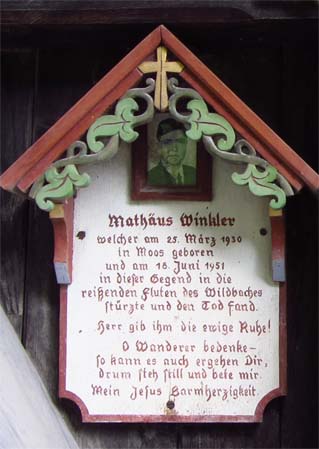 Mathäus Winkler
welcher am 25. März 1930
in Moos geboren
und am 18. Juni 1951
in dieser Gegend in die
reißenden Fluten des Wildbaches
stürzte und den Tod fand.
Herr gib ihm die ewige Ruhe!
O Wanderer bedenke-
so kann es auch ergehen Dir,
drum steh still und bete mir.
Mein Jesus Barmherzigkeit.